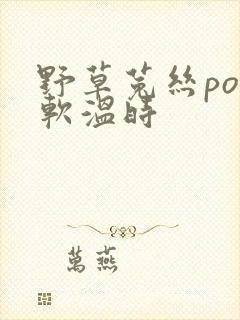 野草菟絲po
軟溫時
萬燕